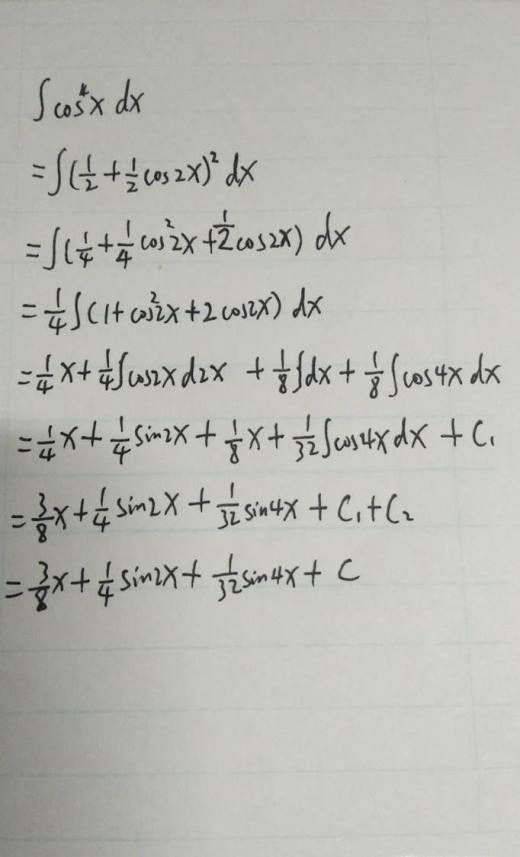 ∫cos⁴x dx
=∫(1/2+1/2cos2x)² dx
=∫(1/4+1/4cos²2x+1/2cos2x) dx
=1/4∫(1+cos²2x+2cos2x) dx
=1/4x+1/4∫cos2xd2x+1/8∫dx+1/8∫cos4xdx
=1/4x+1/4sin2x+1/8x+1/32∫cos4xdx+C₁
=3/8x+1/4sin2x+1/32sin4x+C₁+C₂
=3/8x+1/4sin2x+1/32sin4x+C